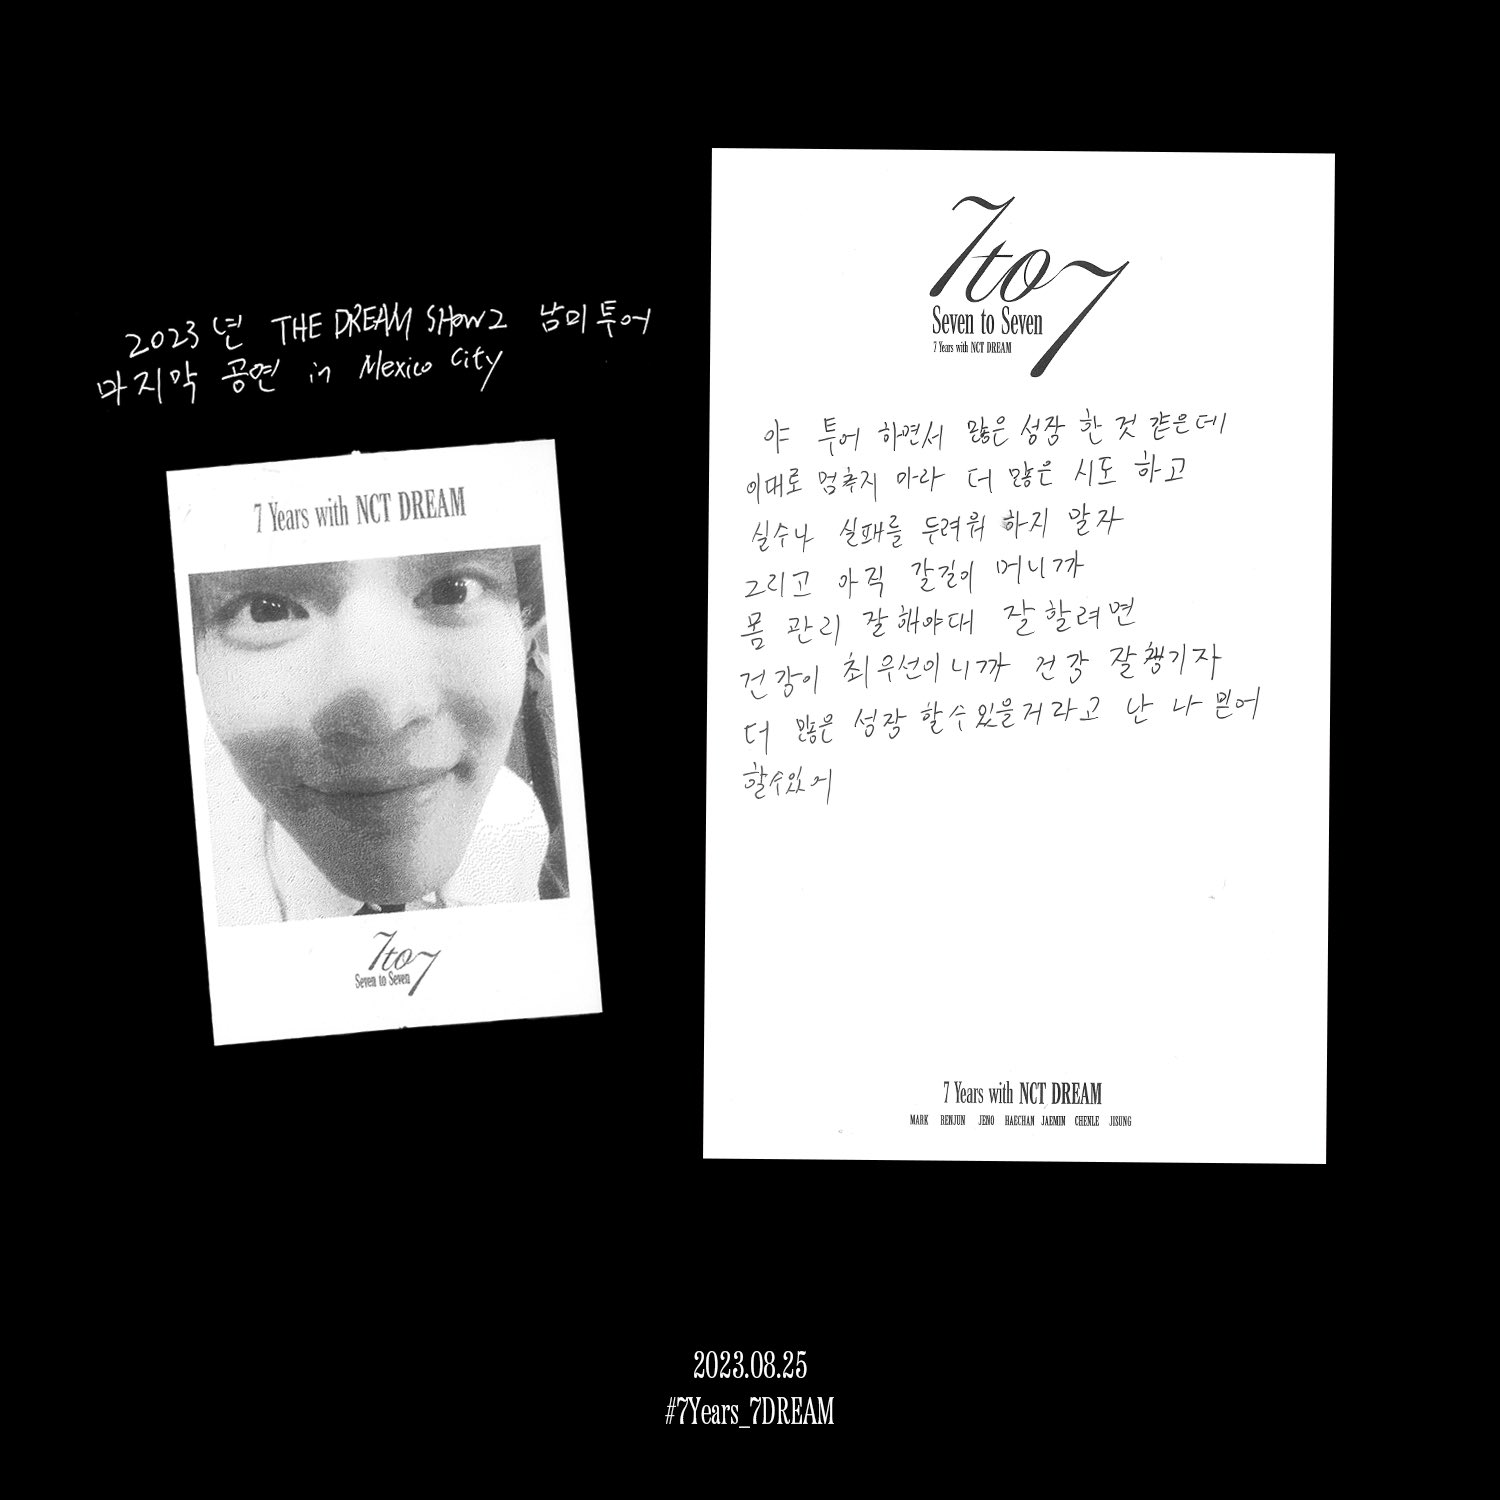 2023년 THE DREAM SHOW2 남미투어
마지막 공연 in Mexico City
7 Years with NCT DREAM
7to7
Seven to Seven
7to7
Seven to Seven
7 Years with NCT DREAM
야 투어 하면서 많은 성장 한 것 같은데
이대로 멈추지 마라 더 많은 시도 하고
실수나 실패를 두려워 하지 말자
그리고 아직 갈길이 머니까
몸 관리 잘해야대 잘할려면
건강이 최우선이니까 건강 잘챙기자
더 많은 성장 할수있을거라고 난 나 믿어
할수있어
7 Years with NCT DREAM
MARK RENJUN JENO HAECHAN JAEMIN CHENLE JISUNG
2023.08.25
#7Years_7DREAM